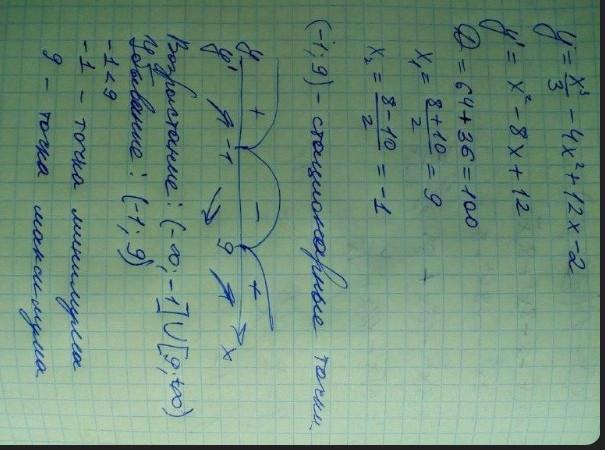 y = x³/3 - 4x² + 12x - 2
y' = x² - 8x + 12
D = 64 + 36 = 100
x₁ = (8 + 10)/2 = 9
x₂ = (8 - 10)/2 = -1
(-1; 9) - стационарные точки.
y + - +
y' ↗ -1 ↘ 9 ↗ x
Возростание: (-∞; -1] ∪ [9; +∞)
Убывание: (-1; 9)
-1 < 9
-1 - точка минимума
9 - точка максимума